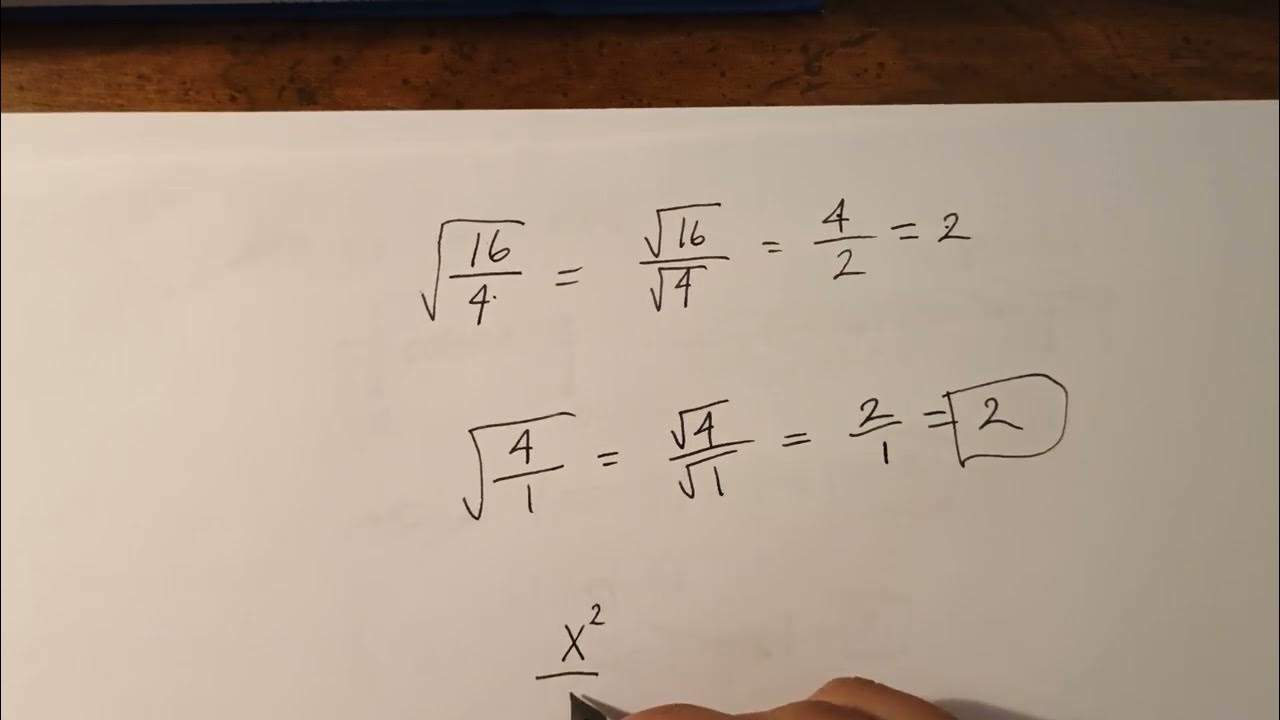 √(16/4) = √16/√4 = 4/2 = 2
√(4/1) = √4/√1 = 2/1 = 2
x²